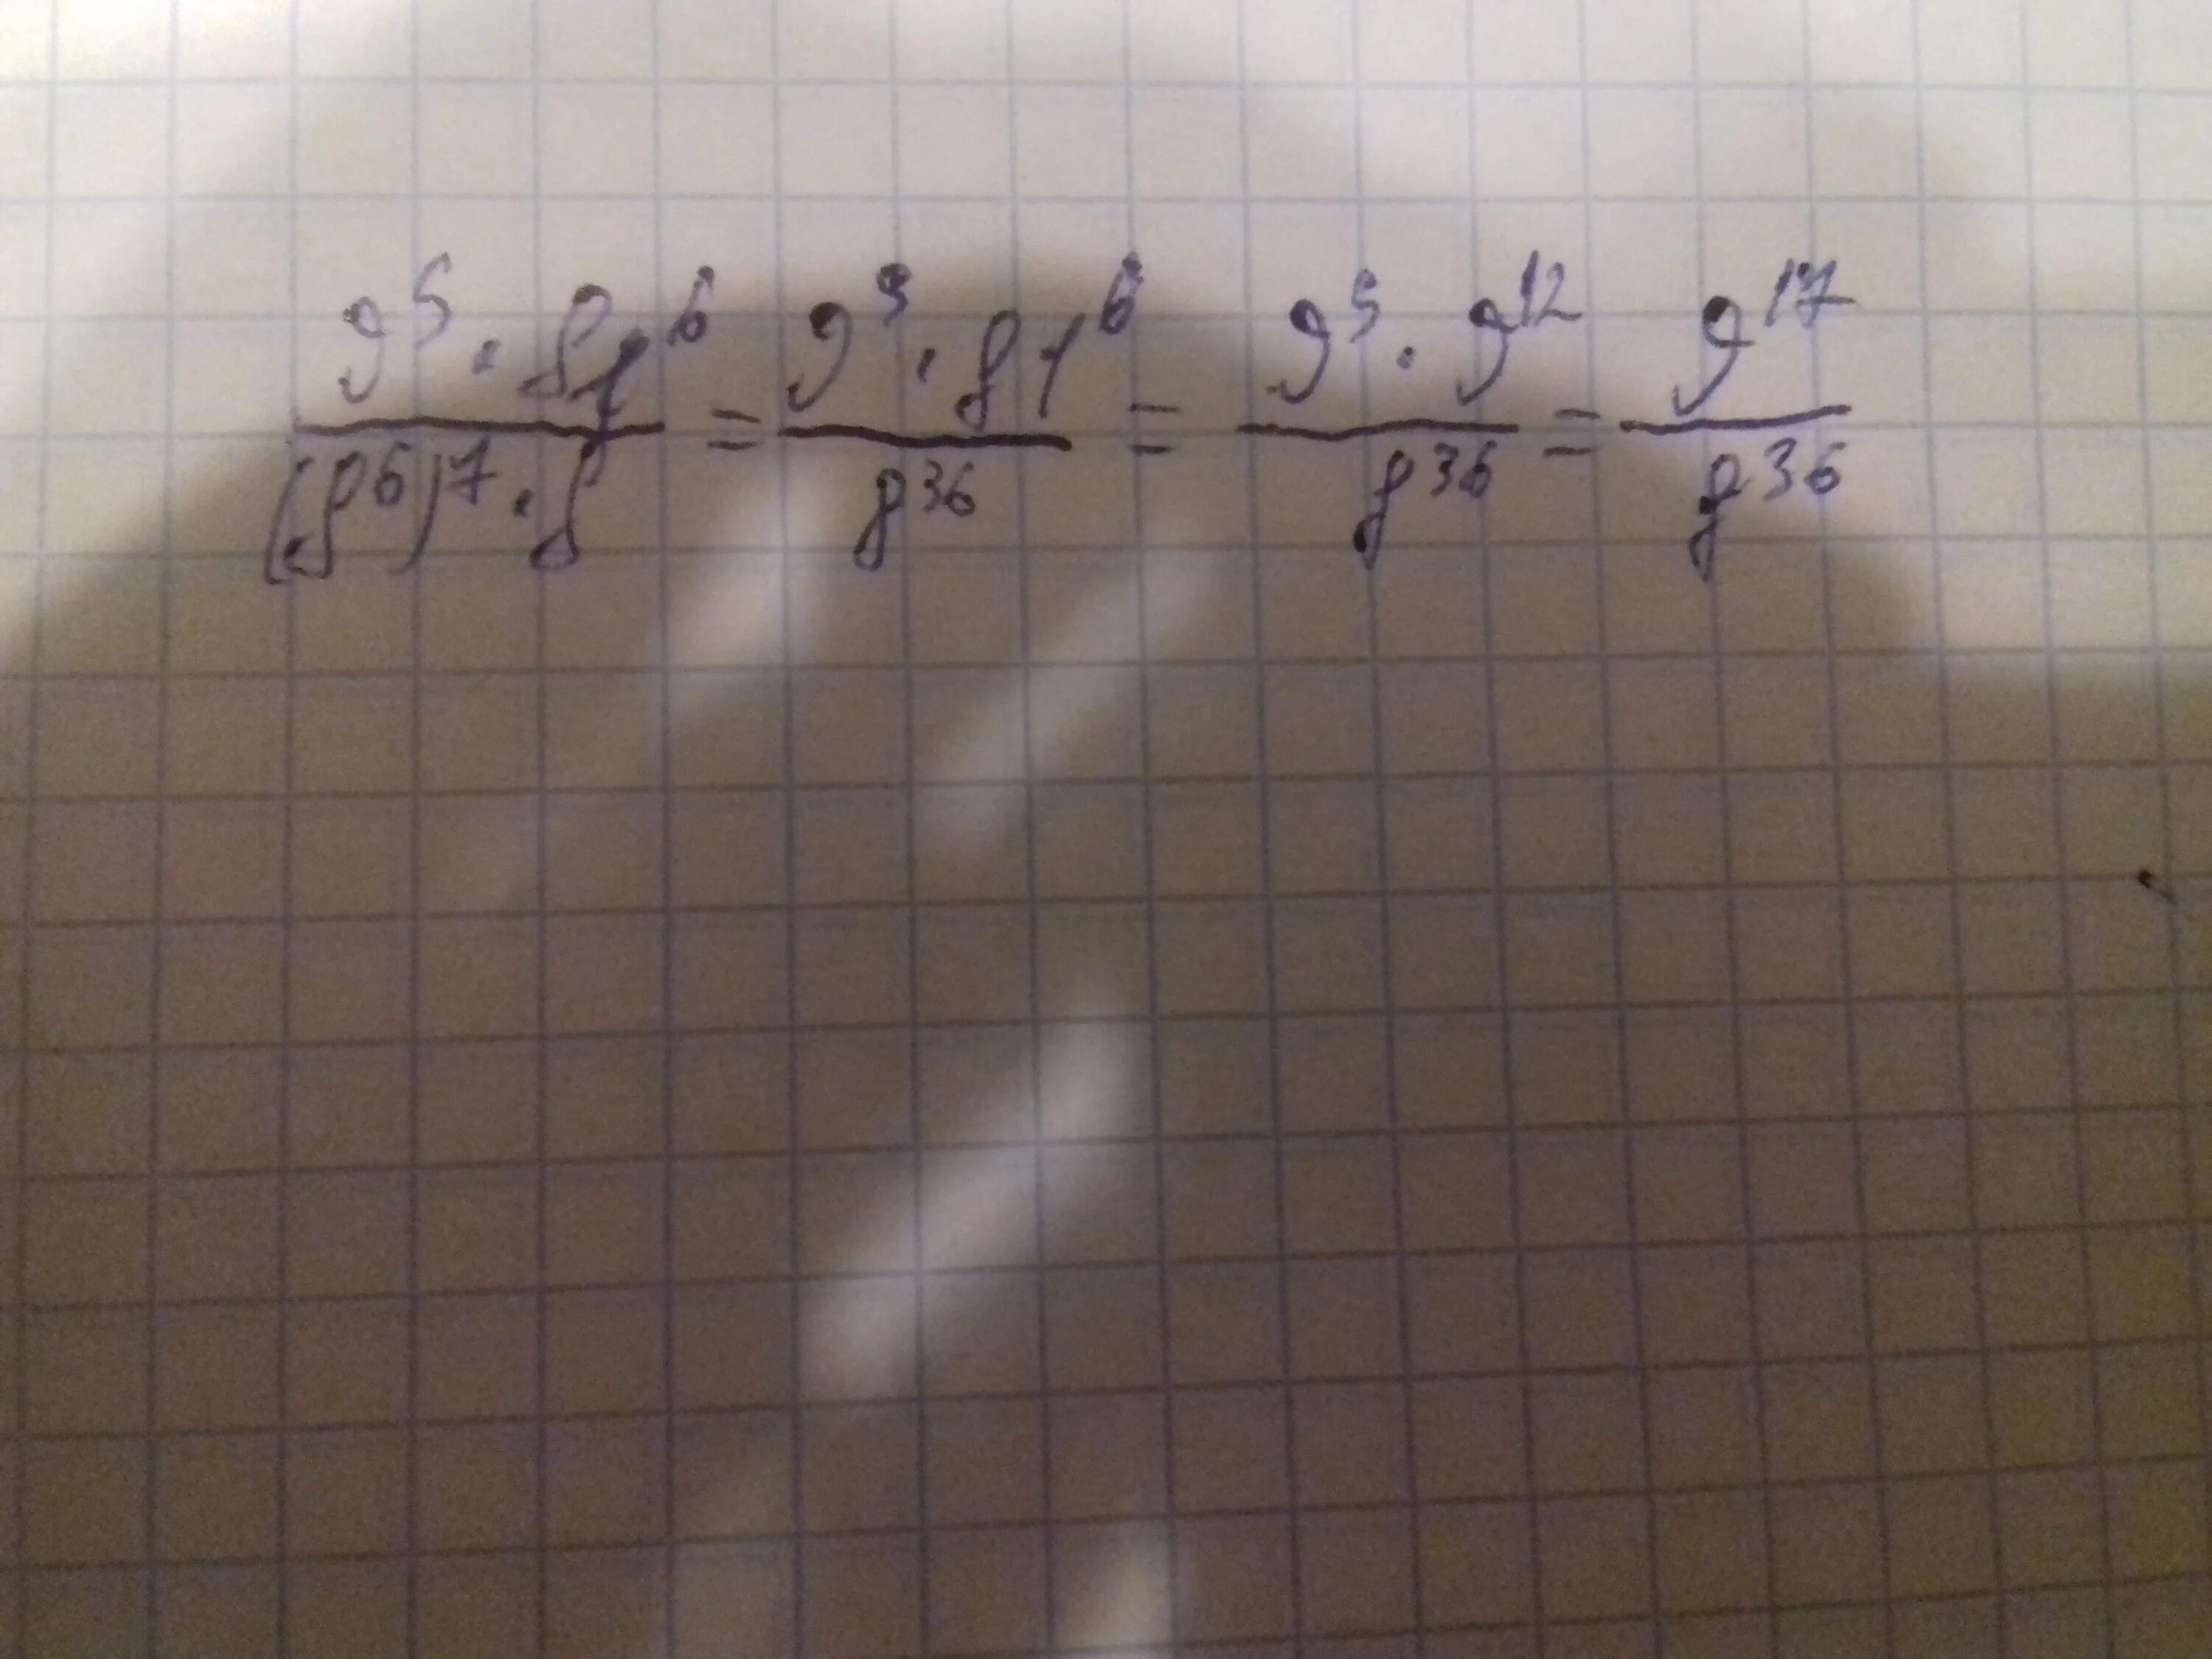 9⁵ · 81⁶ / (8⁶)⁷ · 8 = 9⁵ · 81⁶ / 8³⁶ = 9⁵ · 9¹² / 8³⁶ = 9¹⁷ / 8³⁶